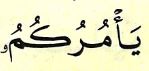 يَأْمُرُكُمُۥ